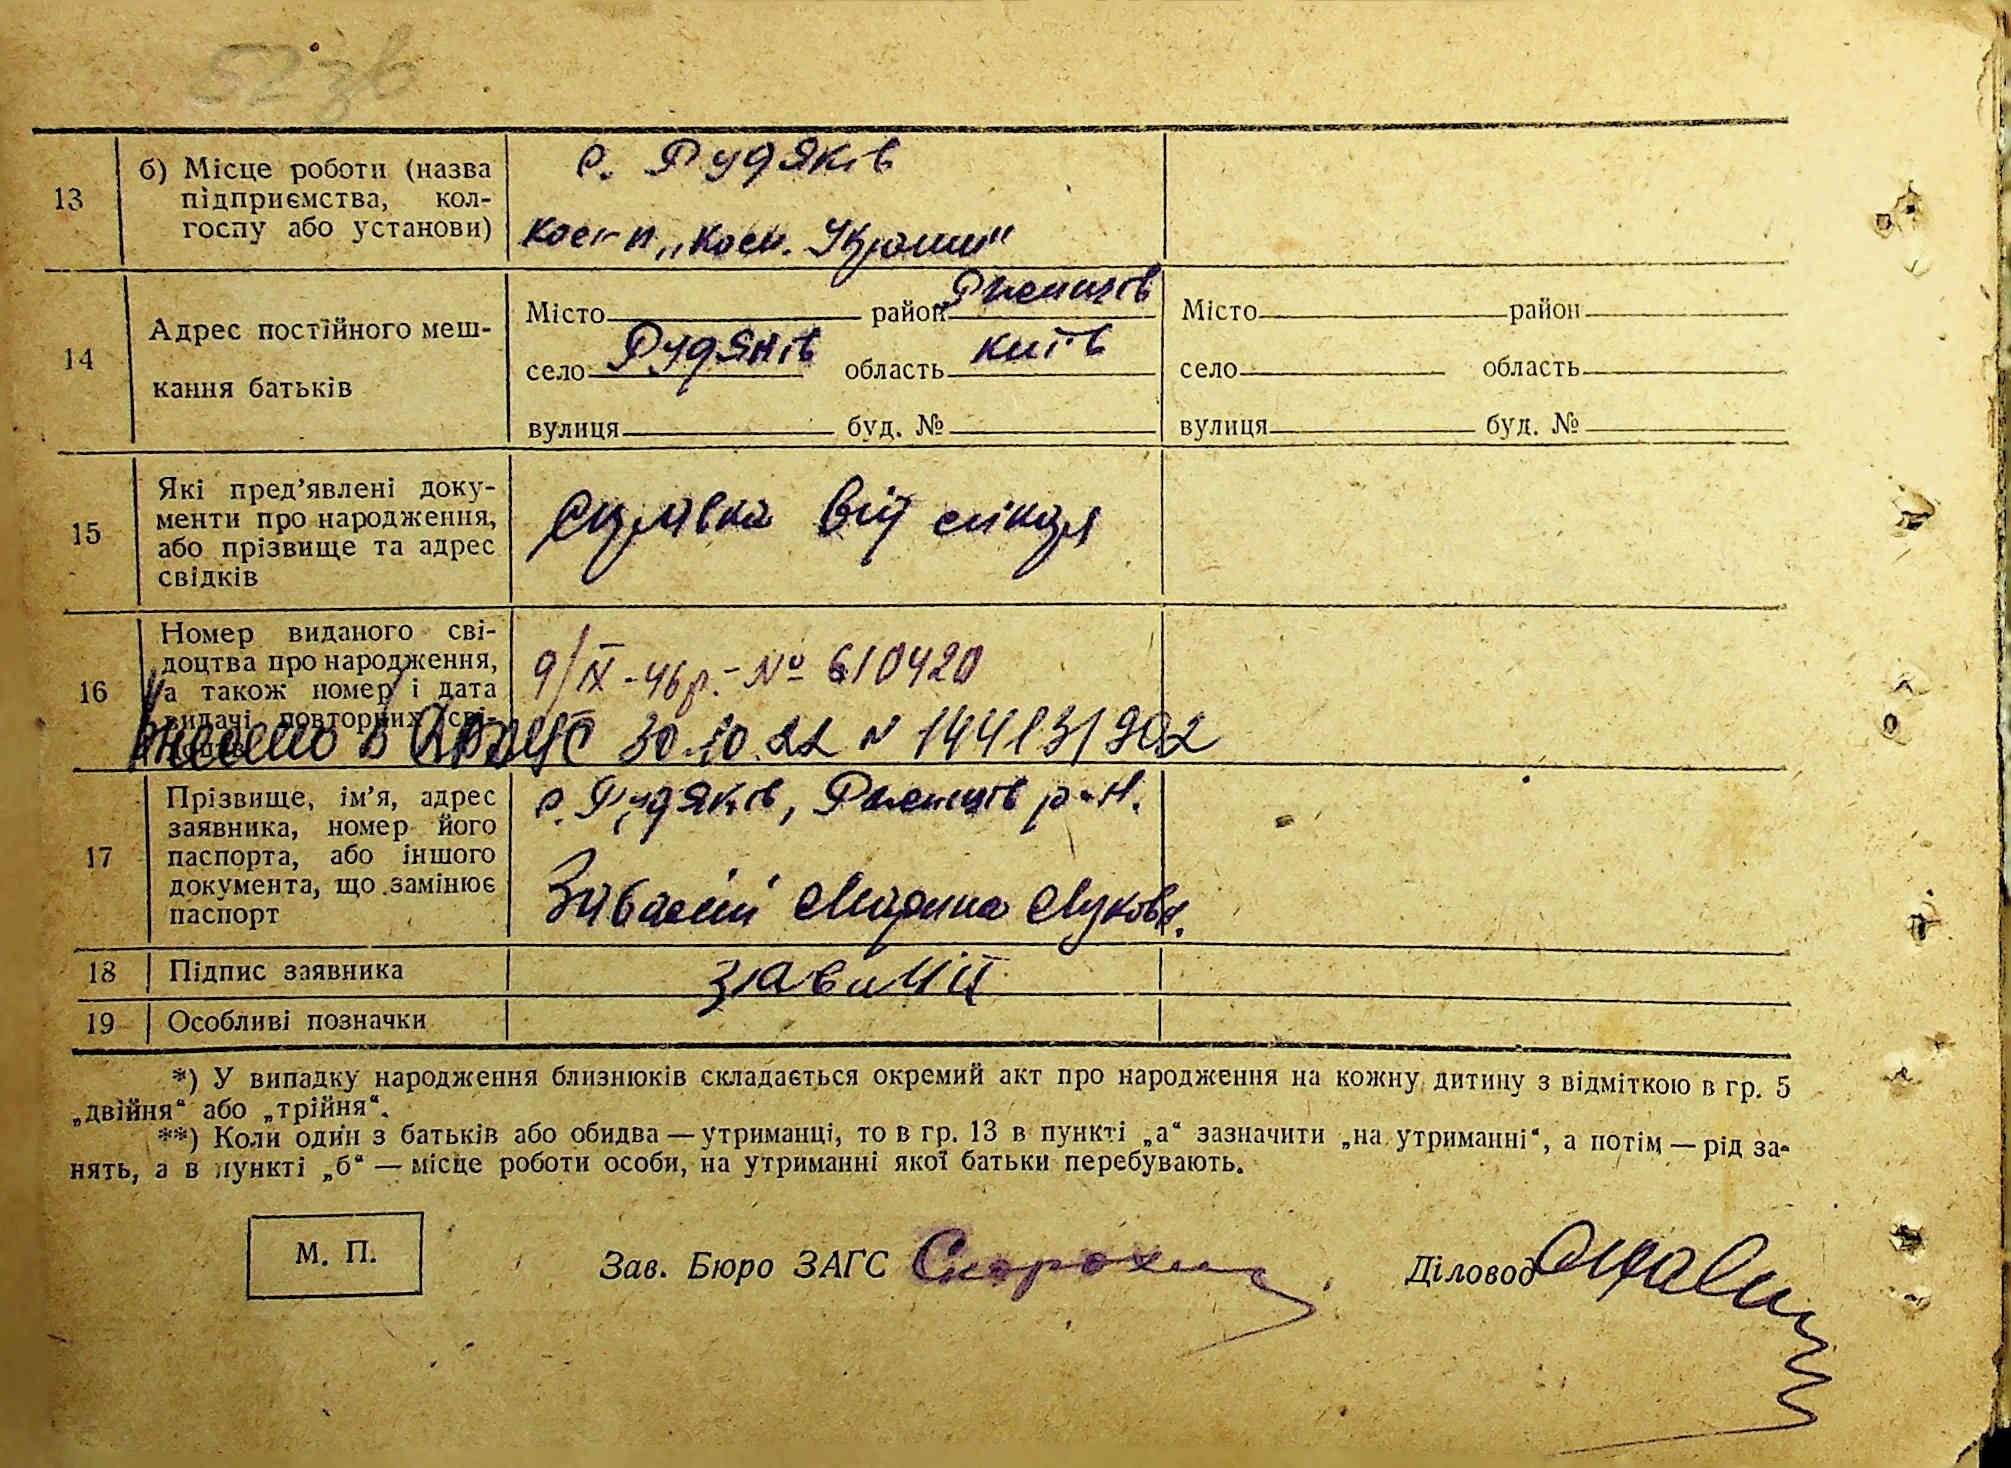 52 зв
13
б) Місце роботи (назва
підприємства, кол-
госпу або установи)
с. Рудяків
14
Адрес постійного меш-
кання батьків
Місто район
село Рудяків область Київ
вулиця буд. №
Місто район
село область
вулиця буд. №
15
Які пред’явлені доку-
менти про народження,
або прізвище та адрес
свідків
16
Номер виданого сві-
доцтва про народження,
а також номер і дата
видачі повторних сві-
9/IX - 46 р. - № 610420
Внесено в 30.10.22 N
17
Прізвище, ім’я, адрес
заявника, номер його
паспорта, або іншого
документа, що замінює
паспорт
с. Рудяків, р-н.
Марина
18
Підпис заявника
19
Особливі позначки
*) У випадку народження близнюків складається окремий акт про народження на кожну дитину з відміткою в гр. 5
„двійня“ або „трійня“.
**) Коли один з батьків або обидва — утриманці, то в гр. 13 в пункті „а“ зазначити „на утриманні“, а потім — рід за-
нять, а в пункті „б“ — місце роботи особи, на утриманні якої батьки перебувають.
М. П.
Зав. Бюро ЗАГС
Діловод